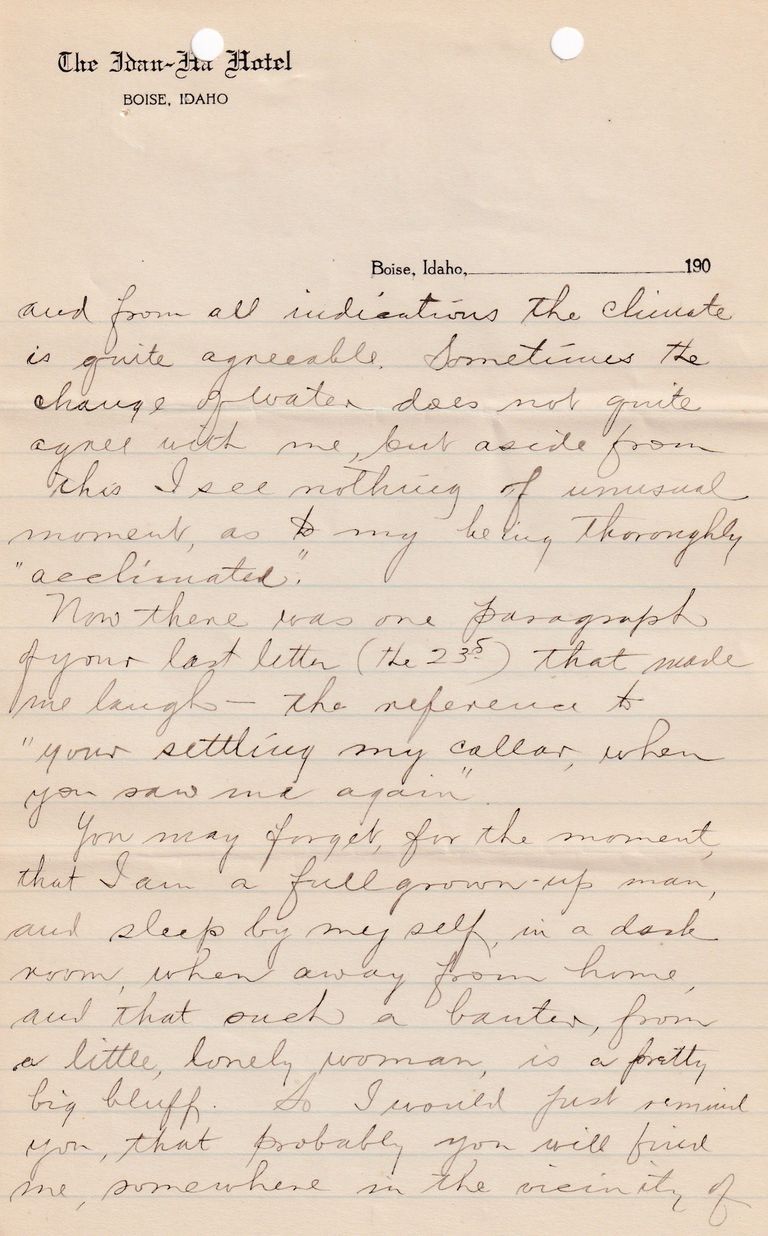 The Idan-Ha Hotel
BOISE, IDAHO
Boise, Idaho, 190
and from all indications the climate
is quite agreeable. Sometimes the
change of water does not quite
agree with me, but aside from
this I see nothing of unusual
moment, as to my being thoroughly
"acclimated".
Now there was one paragraph
of your last letter (the 23rd) that made
me laugh — the reference to
"your settling my collar, when
you saw me again".
You may forget, for the moment,
that I am a full grown-up man,
and sleep by my self, in a dark
room, when away from home,
and that such a banter, from
a little, lonely woman, is a pretty
big bluff. So I would just remind
you, that probably you will find
me, somewhere in the vicinity of